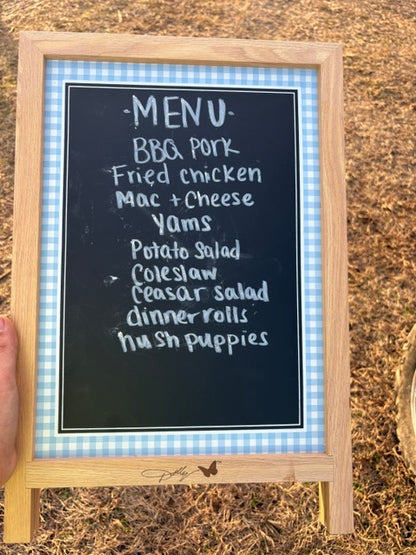 ·MENU·
BBQ Pork
Fried chicken
Mac + Cheese
Yams
Potato Salad
Coleslaw
Ceasar salad
dinner rolls
hush puppies
Dolly